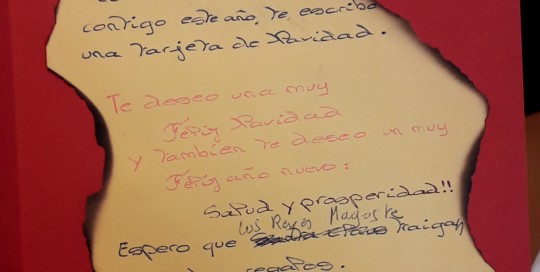 contigo este año, te escribo
una tarjeta de Navidad.
Te deseo una muy
Feliz Navidad
y también te deseo un muy
Feliz año nuevo:
Salud y prosperidad!!
Los Reyes Magos te
Espero que traigan
regalos.